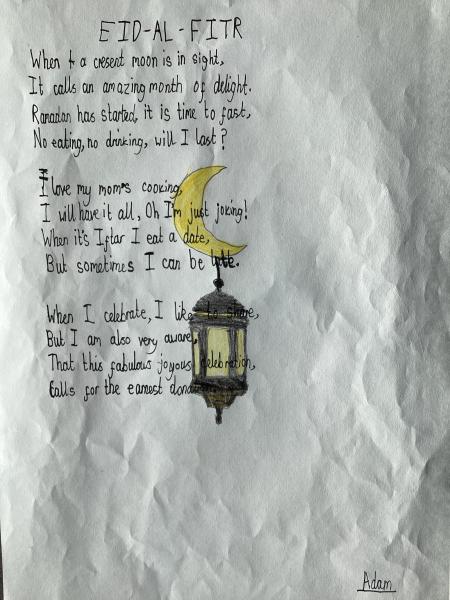 EID-AL-FITR
When a cresent moon is in sight,
It calls an amazing month of delight.
Ramadan has started, it is time to fast,
No eating, no drinking, will I last?
I love my mom's cooking,
I will have it all, Oh I'm just joking!
When it's Iftar I eat a date,
But sometimes I can be late.
When I celebrate, I like to share,
But I am also very aware,
That this fabulous joyous celebration,
Calls for the earnest
Adam